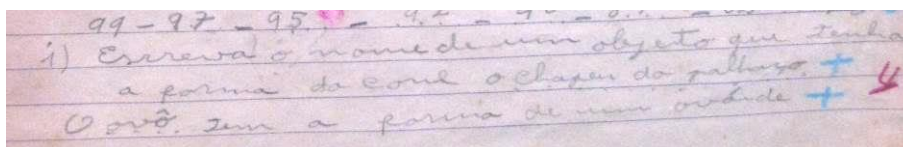 99 - 97 - 95 - 92 - 9
i) Escreva o nome de um objeto que tenha
a forma do cone o chapeu do palhaço +
O ovô tem a forma de um ovóide + 4